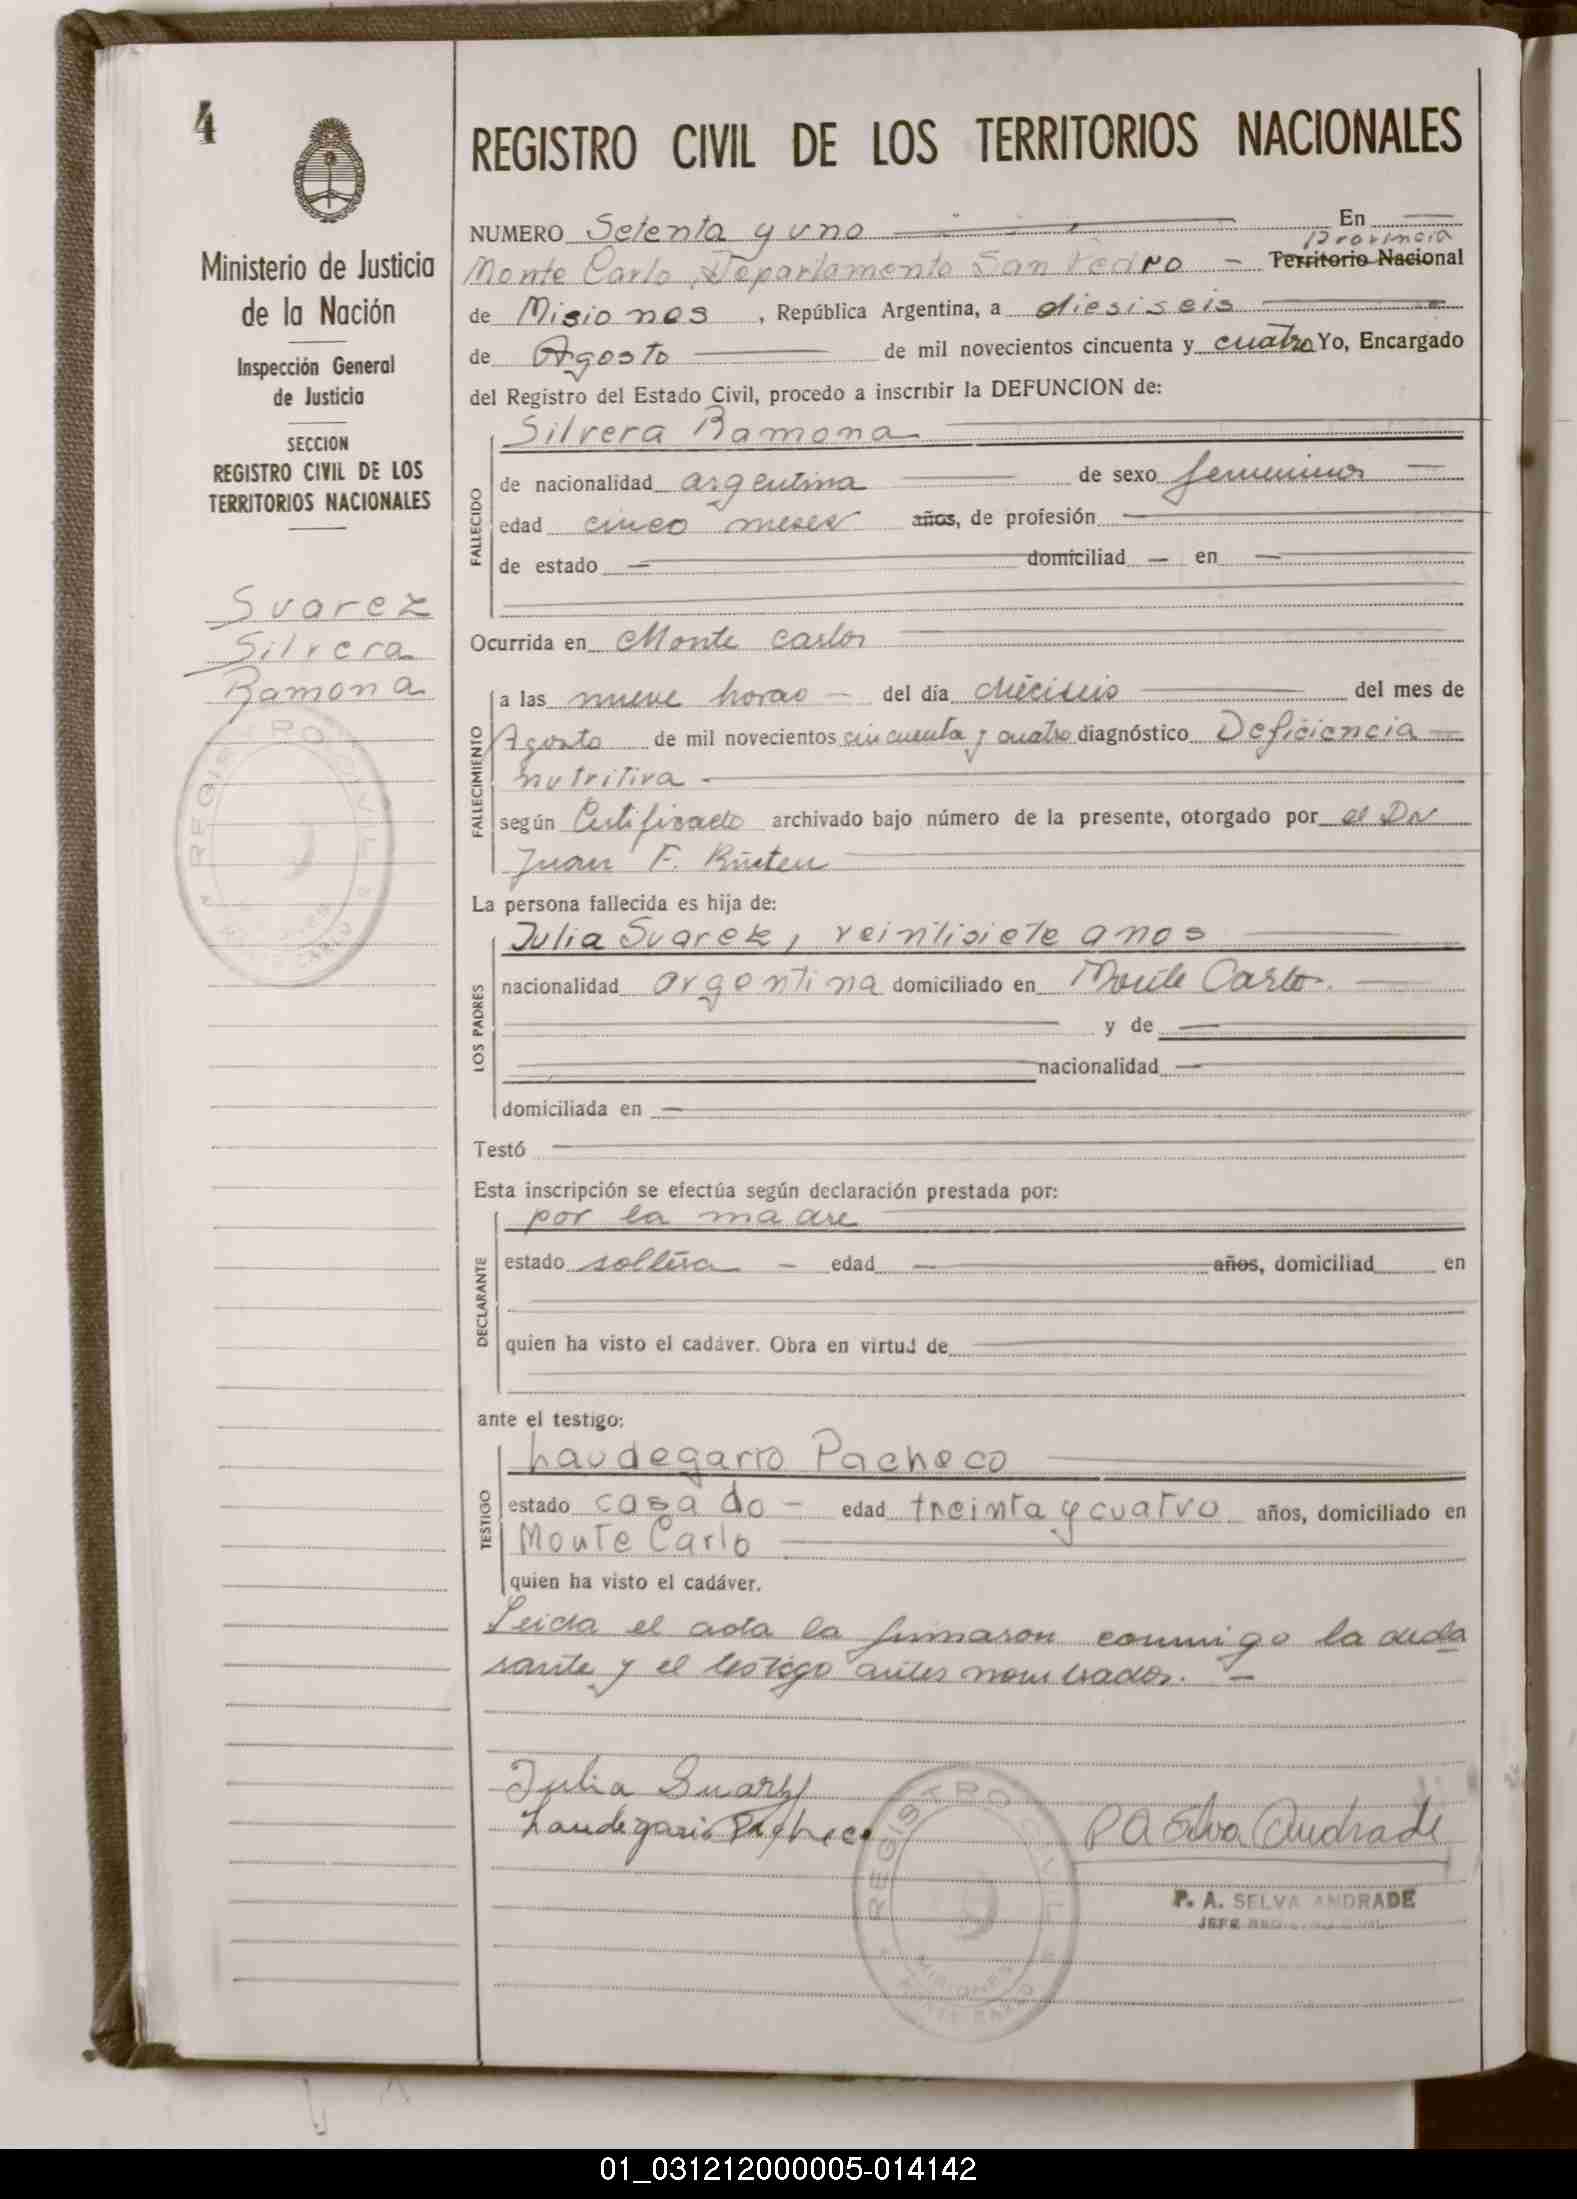 4
Ministerio de Justicia
de la Nación
Inspección General
de Justicia
SECCION
REGISTRO CIVIL DE LOS
TERRITORIOS NACIONALES
Suarez
Silvera
Ramona
REGISTRO CIVIL
REGISTRO CIVIL DE LOS TERRITORIOS NACIONALES
NUMERO Setenta y uno En
Provincia
Monte Carlo, Departamento San Pedro - Territorio Nacional
de Misiones, República Argentina, a diesiseis
de Agosto de mil novecientos cincuenta y cuatro Yo, Encargado
del Registro del Estado Civil, procedo a inscribir la DEFUNCION de:
Silvera Ramona
FALLECIDO
de nacionalidad argentina de sexo femenino
edad cinco meses años, de profesión
de estado domiciliad en
Ocurrida en Monte Carlo
FALLECIMIENTO
a las nueve horas del día dieciseis del mes de
Agosto de mil novecientos cincuenta y cuatro diagnóstico Deficiencia
nutritiva
según Certificado archivado bajo número de la presente, otorgado por el Dr
Juan F.
La persona fallecida es hija de:
LOS PADRES
Julia Suarez, veintisiete anos
nacionalidad argentina domiciliado en Monte Carlo.
y de
nacionalidad
domiciliada en
Testó
Esta inscripción se efectúa según declaración prestada por:
DECLARANTE
por la madre
estado soltera - edad años, domiciliad en
quien ha visto el cadáver. Obra en virtud de
ante el testigo:
TESTIGO
Laudegario Pacheco
estado casado - edad treinta y cuatro años, domiciliado en
Monte Carlo
quien ha visto el cadáver.
Leida el acta la firmaron conmigo la decla
rante y el testigo antes nombrados. -
Julia Suarez
Laudegario Pacheco
REGISTRO CIVIL
MISIONES
MONTE CARLO
P A Selva Andrade
P. A. SELVA ANDRADE
JEFE REGISTRO CIVIL
01_031212000005-014142